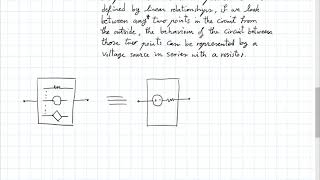 defined by linear relationships, if we look
between any two points in the circuit from
the outside, the behaviour of the circuit between
those two points can be represented by a
voltage source in series with a resistor.